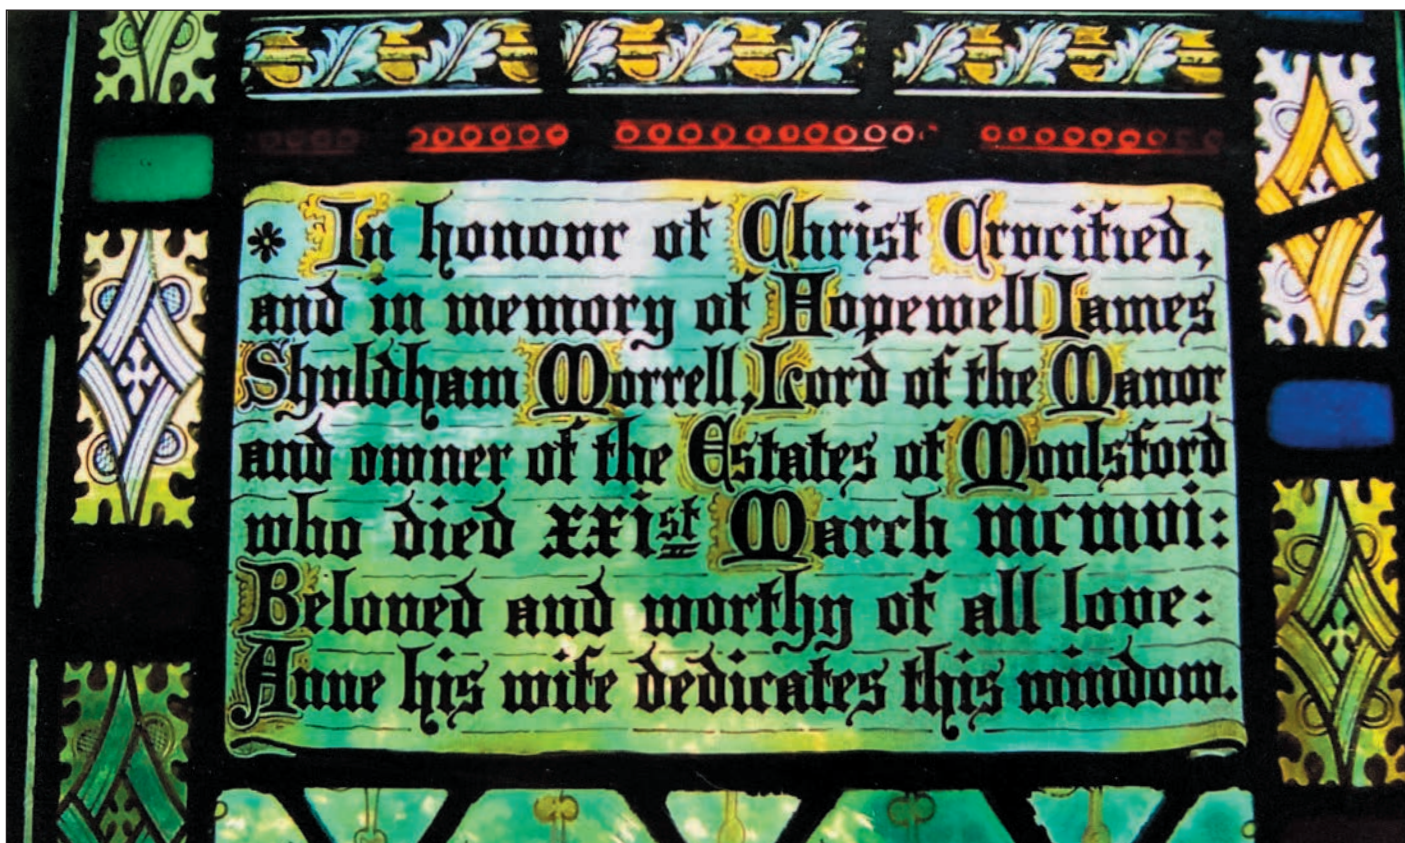 * In honour of Christ Crucified,
and in memory of Hopewell James
Shuldham Morrell, Lord of the Manor
and owner of the Estates of Moulsford
who died xxist March mcmvi:
Beloved and worthy of all love:
Anne his wife dedicates this window.